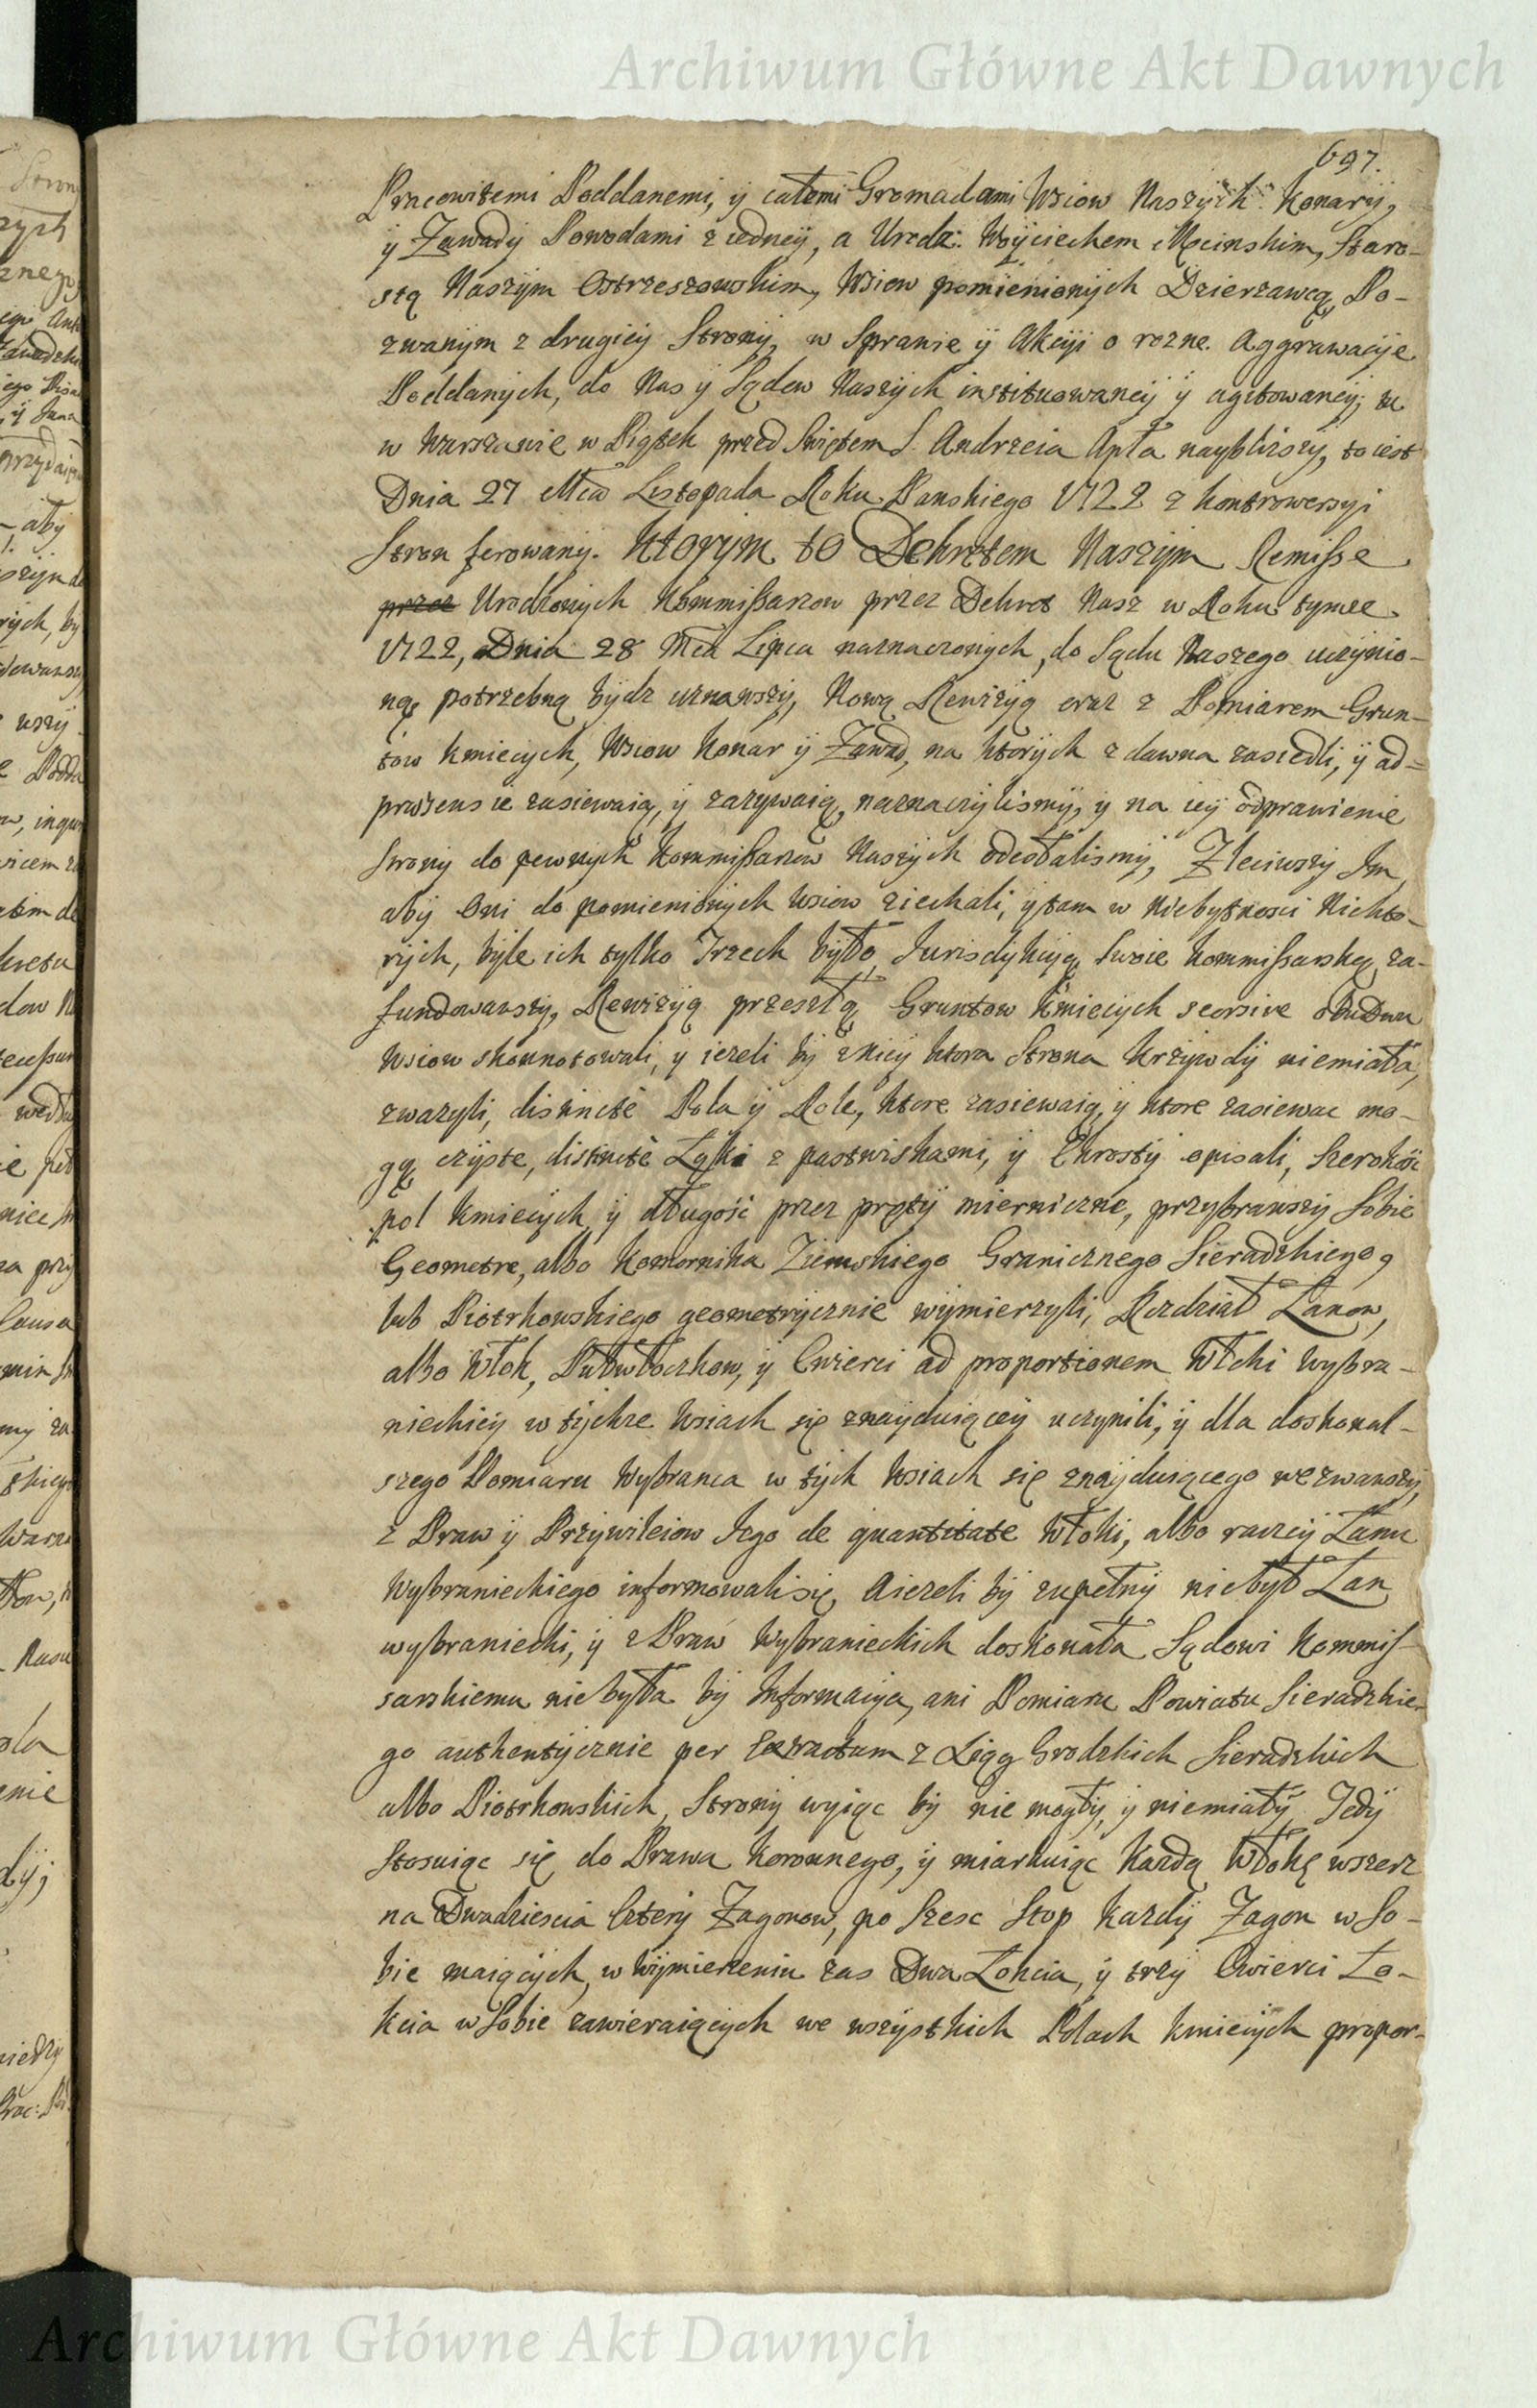 Archiwum Główne Akt Dawnych
697.
Pracowitemi Poddanemi, y całemi Gromadami Wsiow Naszych Konary,
y Zawady Powodami z iedney, a Urodz: Woyciechem Mecinskim, Staro-
stą Naszym Ostrzeszowskim, Wsiow pomienionych Dzierzawcą, Po-
zwanym z drugiey Strony, w Sprawie y Akcyi o rozne Aggrawacye
Poddanych, do Nas y Sądow Naszych instituowaney y agitowaney, tu
w Warszawie w Piątek przed Swiętem S. Andrzeia Apła naybliższy, to iest
Dnia 27 Mca Listopada Roku Panskiego 1722 z kontrowersyi
Stron ferowany. Ktorym to Dekretem Naszym Remisse
przez Urodzonych Kommissarzow przez Dekret Nasz w Roku tymze
1722, Dnia 28 Mca Lipca naznaczonych, do Sądu Naszego uczynio-
ną potrzebną bydz uznawszy, Nową Rewizyą oraz z Pomiarem Grun-
tow Kmiecych, Wsiow Konar y Zawad, na ktorych z dawna zasiedli, y ad-
praesens ie zasiewaią, y zazywaią, naznaczylismy, y na iey odprawienie
Strony do pewnych Kommissarzow Naszych odesłalismy, Zleciwszy Im,
aby Oni do pomienionych Wsiow ziechali, y tam w Niebytnosci Niekto-
rych, byle ich tylko Trzech było, Jurisdykcyą Swoie Kommissarską za-
fundowawszy, Rewizyą przeszłą Gruntow Kmiecych seorsive obudwu
Wsiow skonnotowali, y iezeli by z niey ktora Strona Krzywdy niemiała,
zwazyli, distincte Pola y Role, ktore zasiewaią, y ktore zasiewac mo-
gą czyste, distincte Łąki z pastwiskami, y Chrosty opisali, Szerokość
pol Kmiecych y długość przez pręty miernicze, przybrawszy Sobie
Geometre, albo Komornika Ziemskiego Granicznego Sieradzkiego,
lub Piotrkowskiego geometrycznie wymierzyli, Rozdział Łanow,
albo Włok, Pułwłoczkow, y Cwierci ad proportionem Włoki Wybra-
nieckiey w tychze Wsiach się znayduiącey uczynili, y dla doskonal-
szego Pomiaru Wybranca w tych Wsiach się znayduiącego wezwawszy,
z Praw y Przywileiow Jego de quantitate Włoki, albo raczey Łanu
Wybranieckiego informowali się, A iezeli by zupełny niebył Łan
wybraniecki, y z Praw Wybranieckich doskonała Sądowi Kommis-
sarskiemu niebyła by Informacya, ani Pomiaru Powiatu Sieradzkie-
go authentycznie per Extractum z Xiąg Grodzkich Sieradzkich
albo Piotrkowskich, Strony wyiąc by nie mogły, y niemiały. Tedy
Stosuiąc się do Prawa Koronnego, y miarkuiąc Kazdą Włokę wszerz
na Dwadziescia Cztery Zagonow, po Szesc Stop Kazdy Zagon w So-
bie maiących, w Wymierzeniu zas Dwa Łokcia, y trzy Cwierci Ło-
kcia w Sobie zawieraiących we wszystkich Polach Kmiecych propor-
Archiwum Główne Akt Dawnych